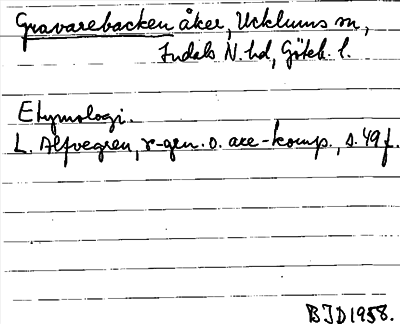 Gravarebacken åker, Ucklums sn,
Inlals N. hd, Göteb. l.
Etymologi.
L. Alfvegren, r-gen. o. are-komp., s. 49 f.
BJD 1958.